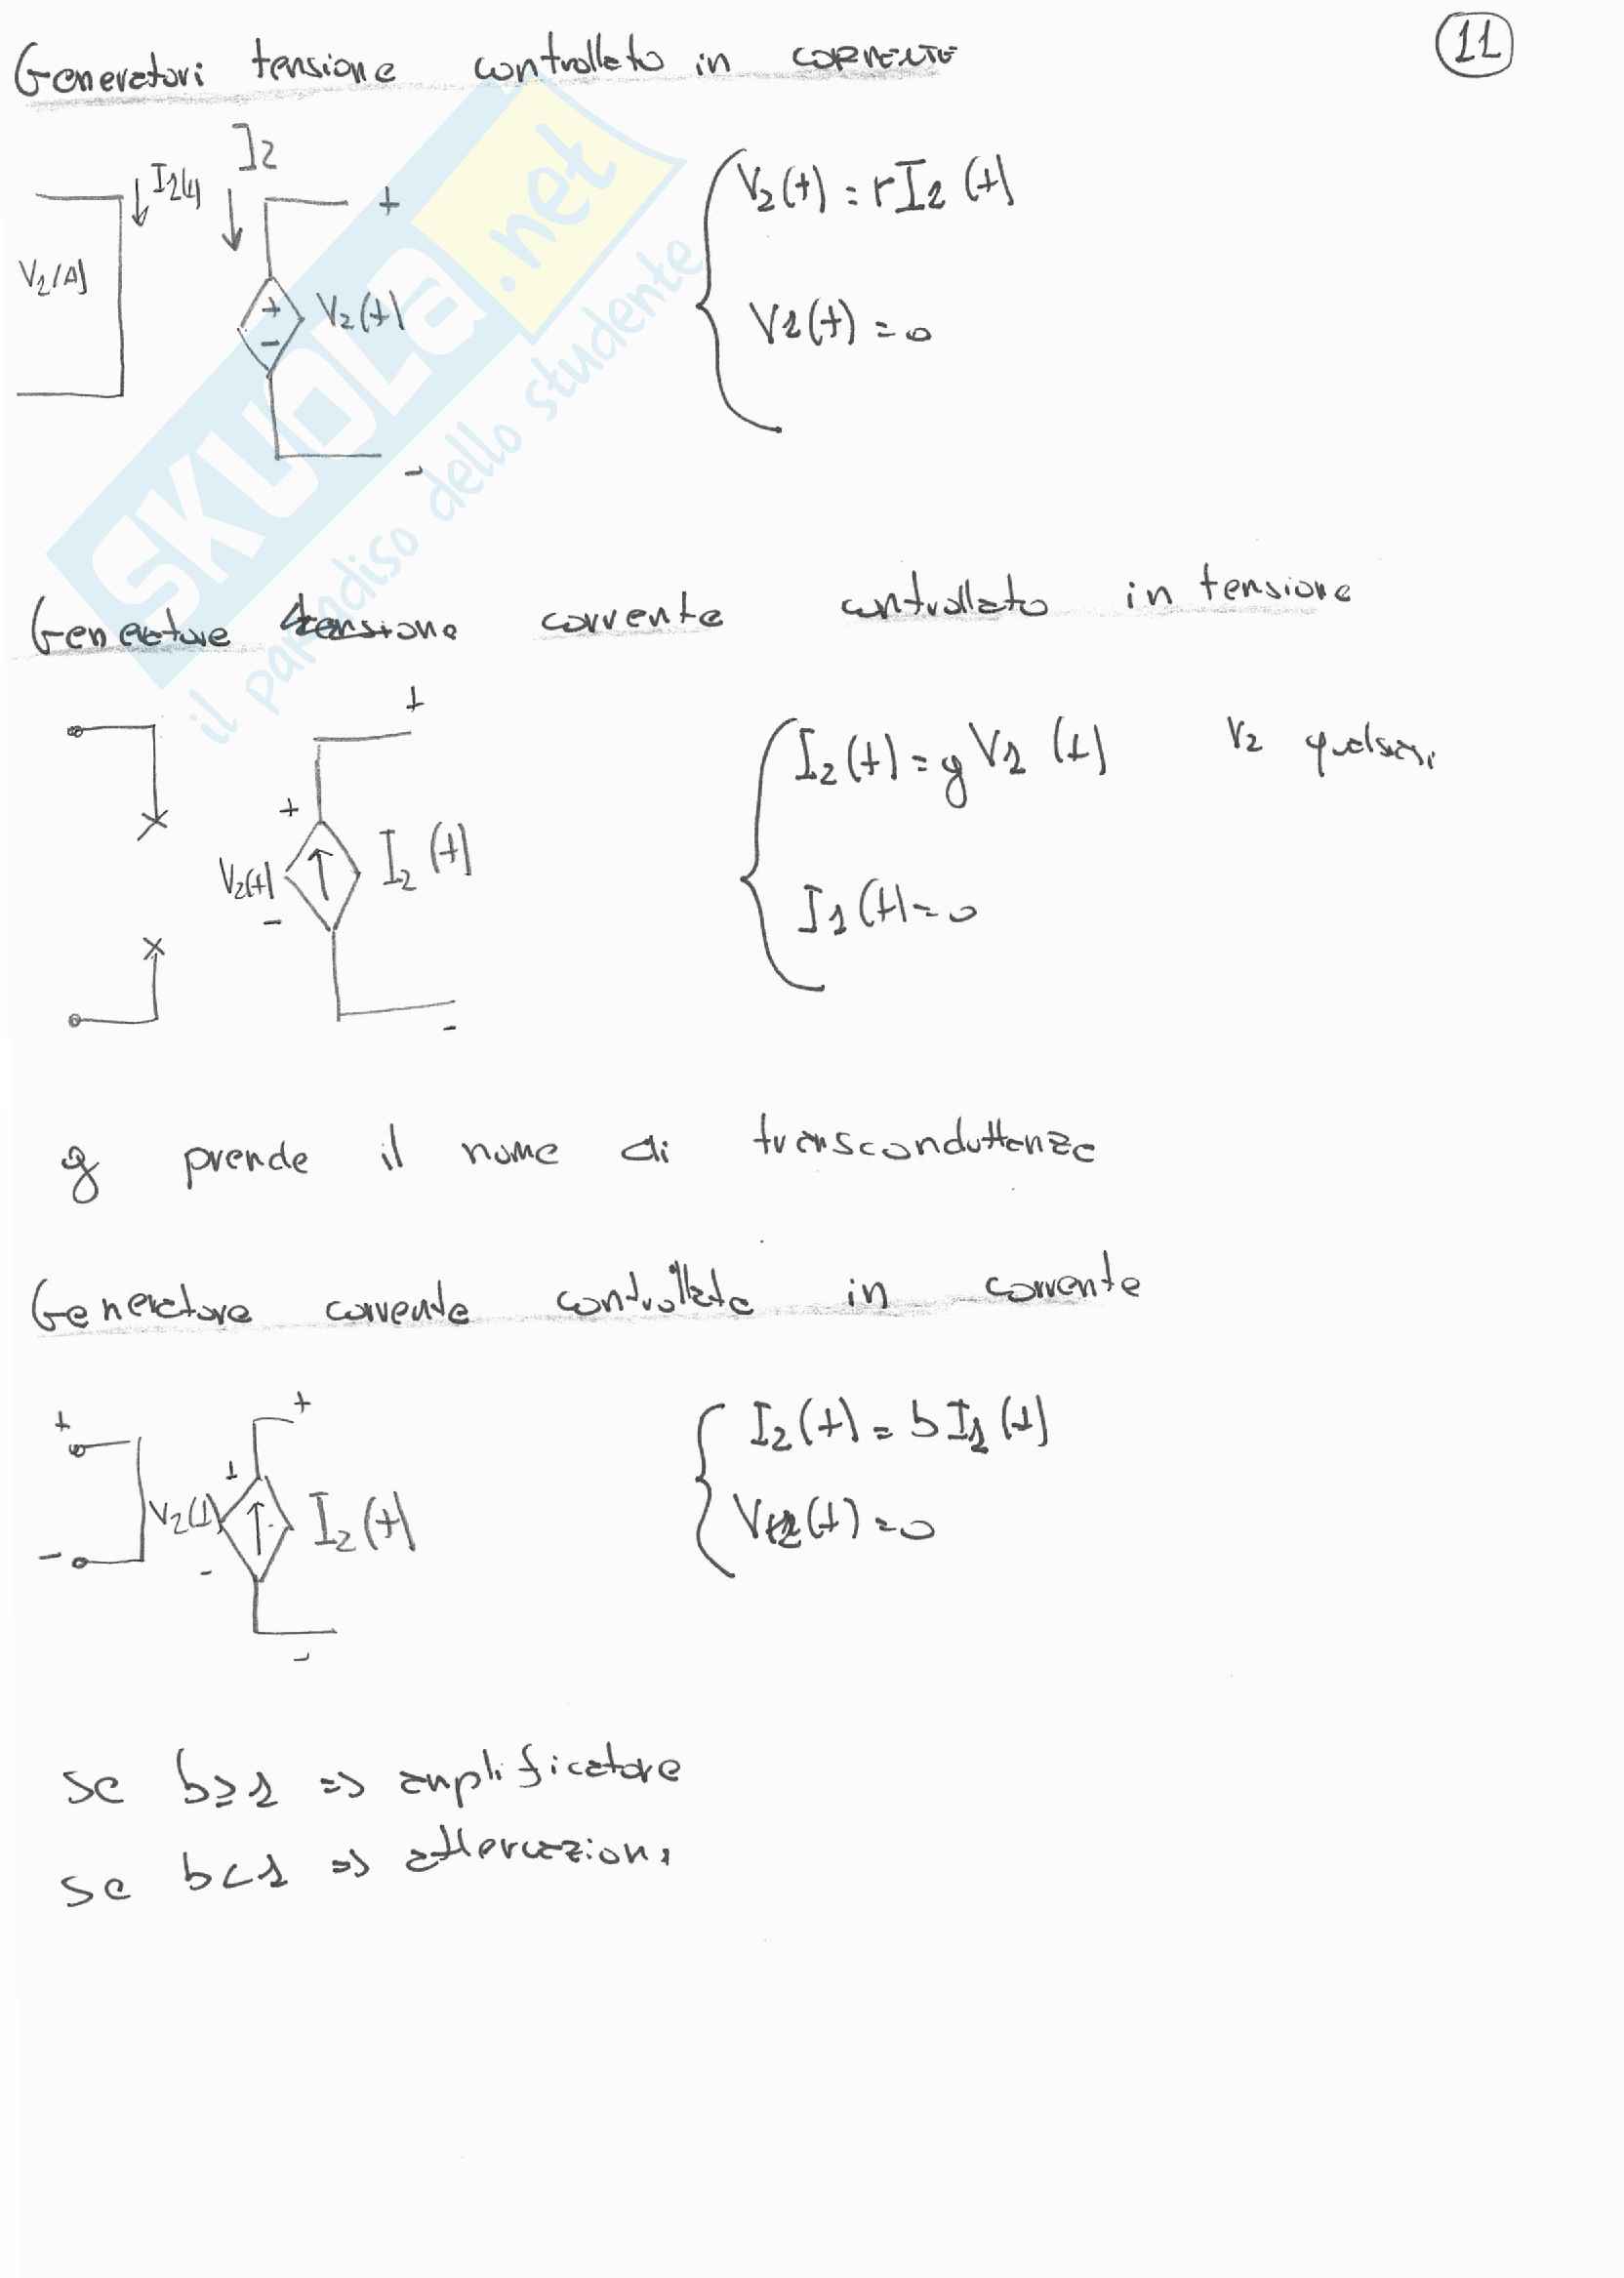 11
Generatori tensione controllato in CORRENTE
I2
I1(t)
V1(t)
+
+
-
V2(t)
-
V2(t) = rI1(t)
V1(t) = 0
SKUOLA.net
il paradiso dello studente
Generatore tensione corrente controllato in tensione
+
+
V2(t)
-
I2(t)
-
I2(t) = gV1(t) V2 qualsiasi
I1(t) = 0
g prende il nome di transconduttanza
Generatore corrente controllato in corrente
+
-
+
+
V2(t)
-
I2(t)
-
I2(t) = bI1(t)
V1(t) = 0
se b≥1 => amplificatore
se b<1 => attenuazioni